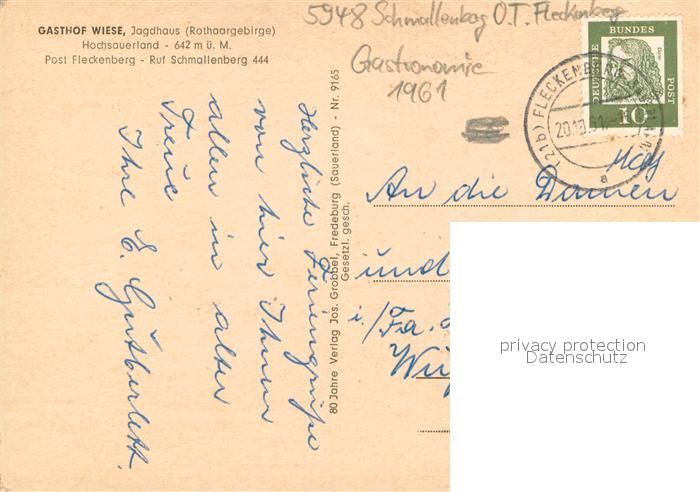 GASTHOF WIESE, Jagdhaus (Rothaargebirge)
Hochsauerland - 642 m ü. M.
Post Fleckenberg - Ruf Schmallenberg 444
5948 Schmallenbg O.T. Fleckenberg
Gastronomie
1961
Herzliche Feriengrüße
von hier Ihnen
allen in alter
Treue
Ihre E. Gutberlett.
80 Jahre Verlag Jos. Grobbel, Fredeburg (Sauerland) - Nr. 9165
Gesetzl. gesch.
DEUTSCHE
BUNDES
POST
10
(21b) FLECKENBERG
a
An die Damen
und
i/Fa.
privacy protection
Datenschutz